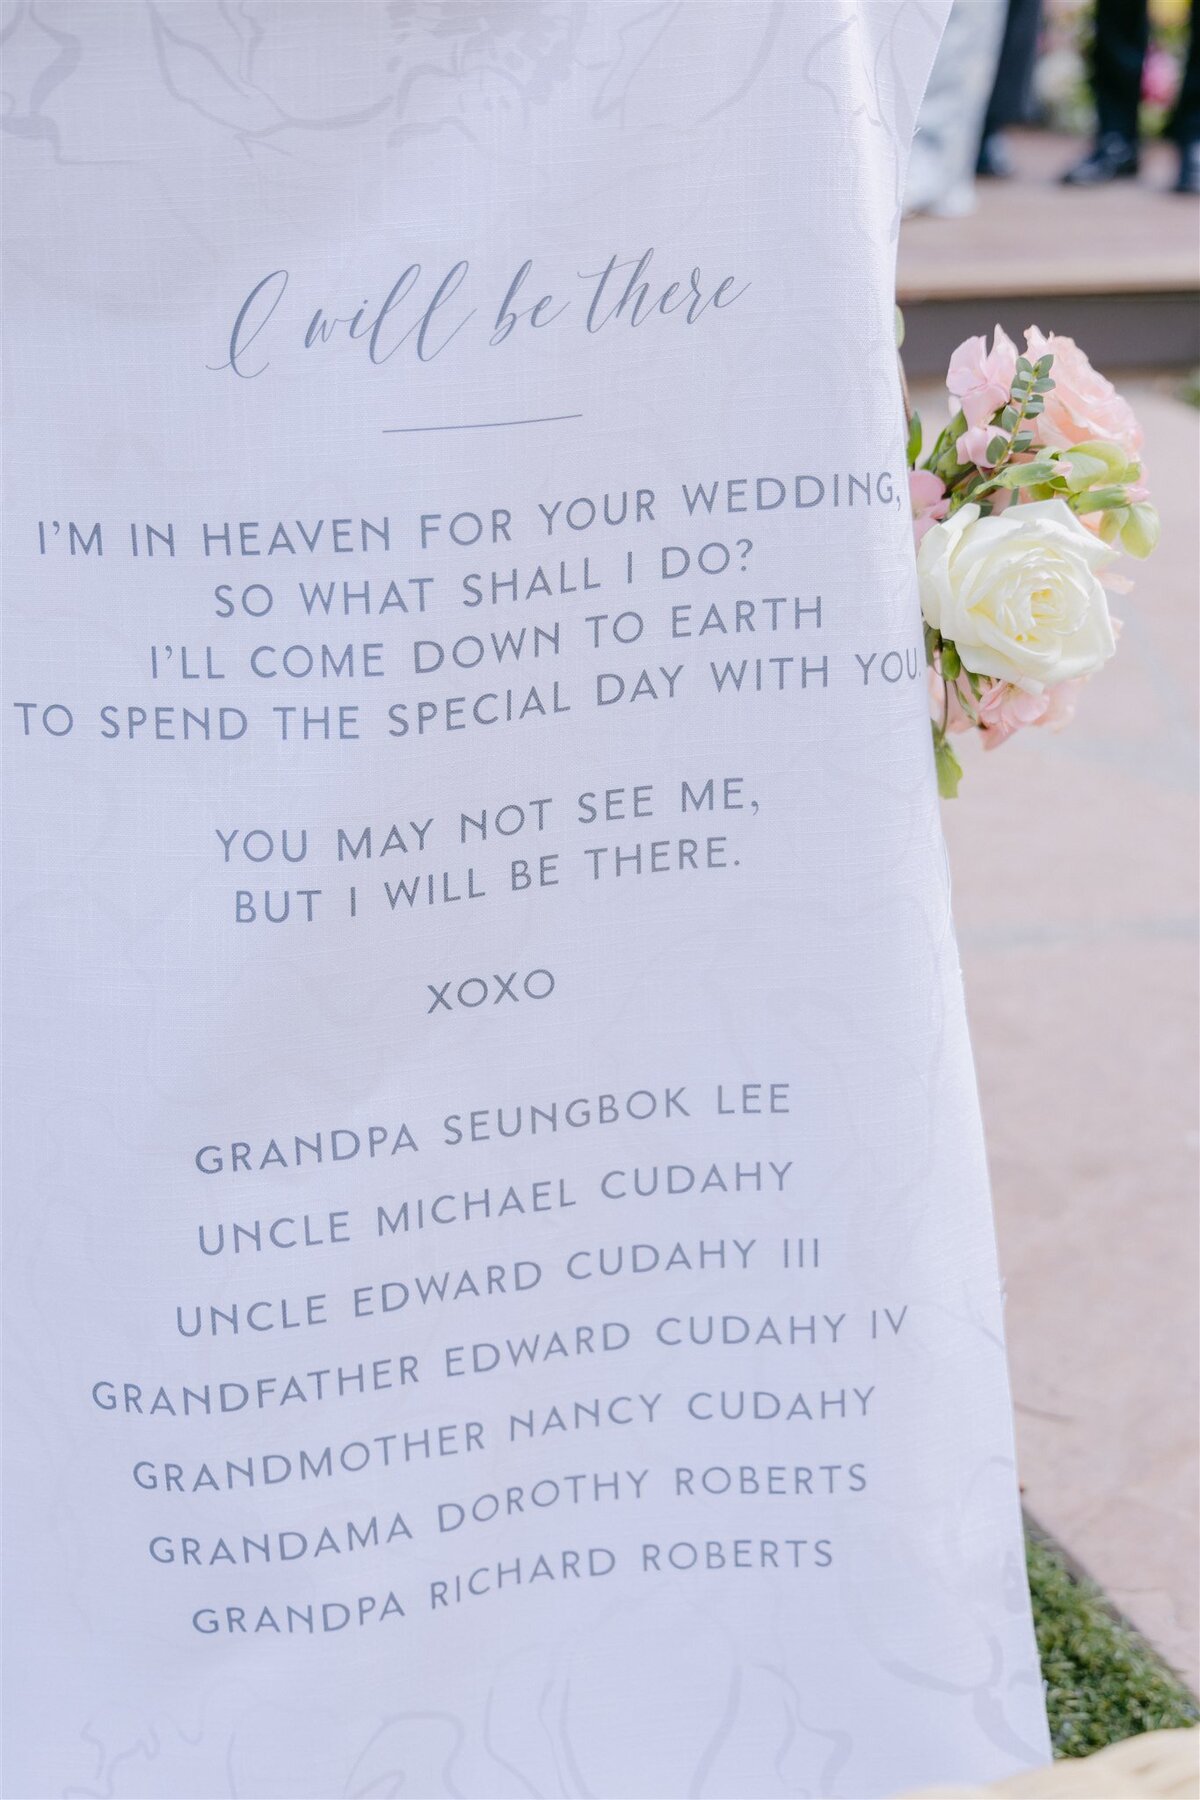 I will be there
I'M IN HEAVEN FOR YOUR WEDDING,
SO WHAT SHALL I DO?
I'LL COME DOWN TO EARTH
TO SPEND THE SPECIAL DAY WITH YOU.
YOU MAY NOT SEE ME,
BUT I WILL BE THERE.
XOXO
GRANDPA SEUNGBOK LEE
UNCLE MICHAEL CUDAHY
UNCLE EDWARD CUDAHY III
GRANDFATHER EDWARD CUDAHY IV
GRANDMOTHER NANCY CUDAHY
GRANDAMA DOROTHY ROBERTS
GRANDPA RICHARD ROBERTS